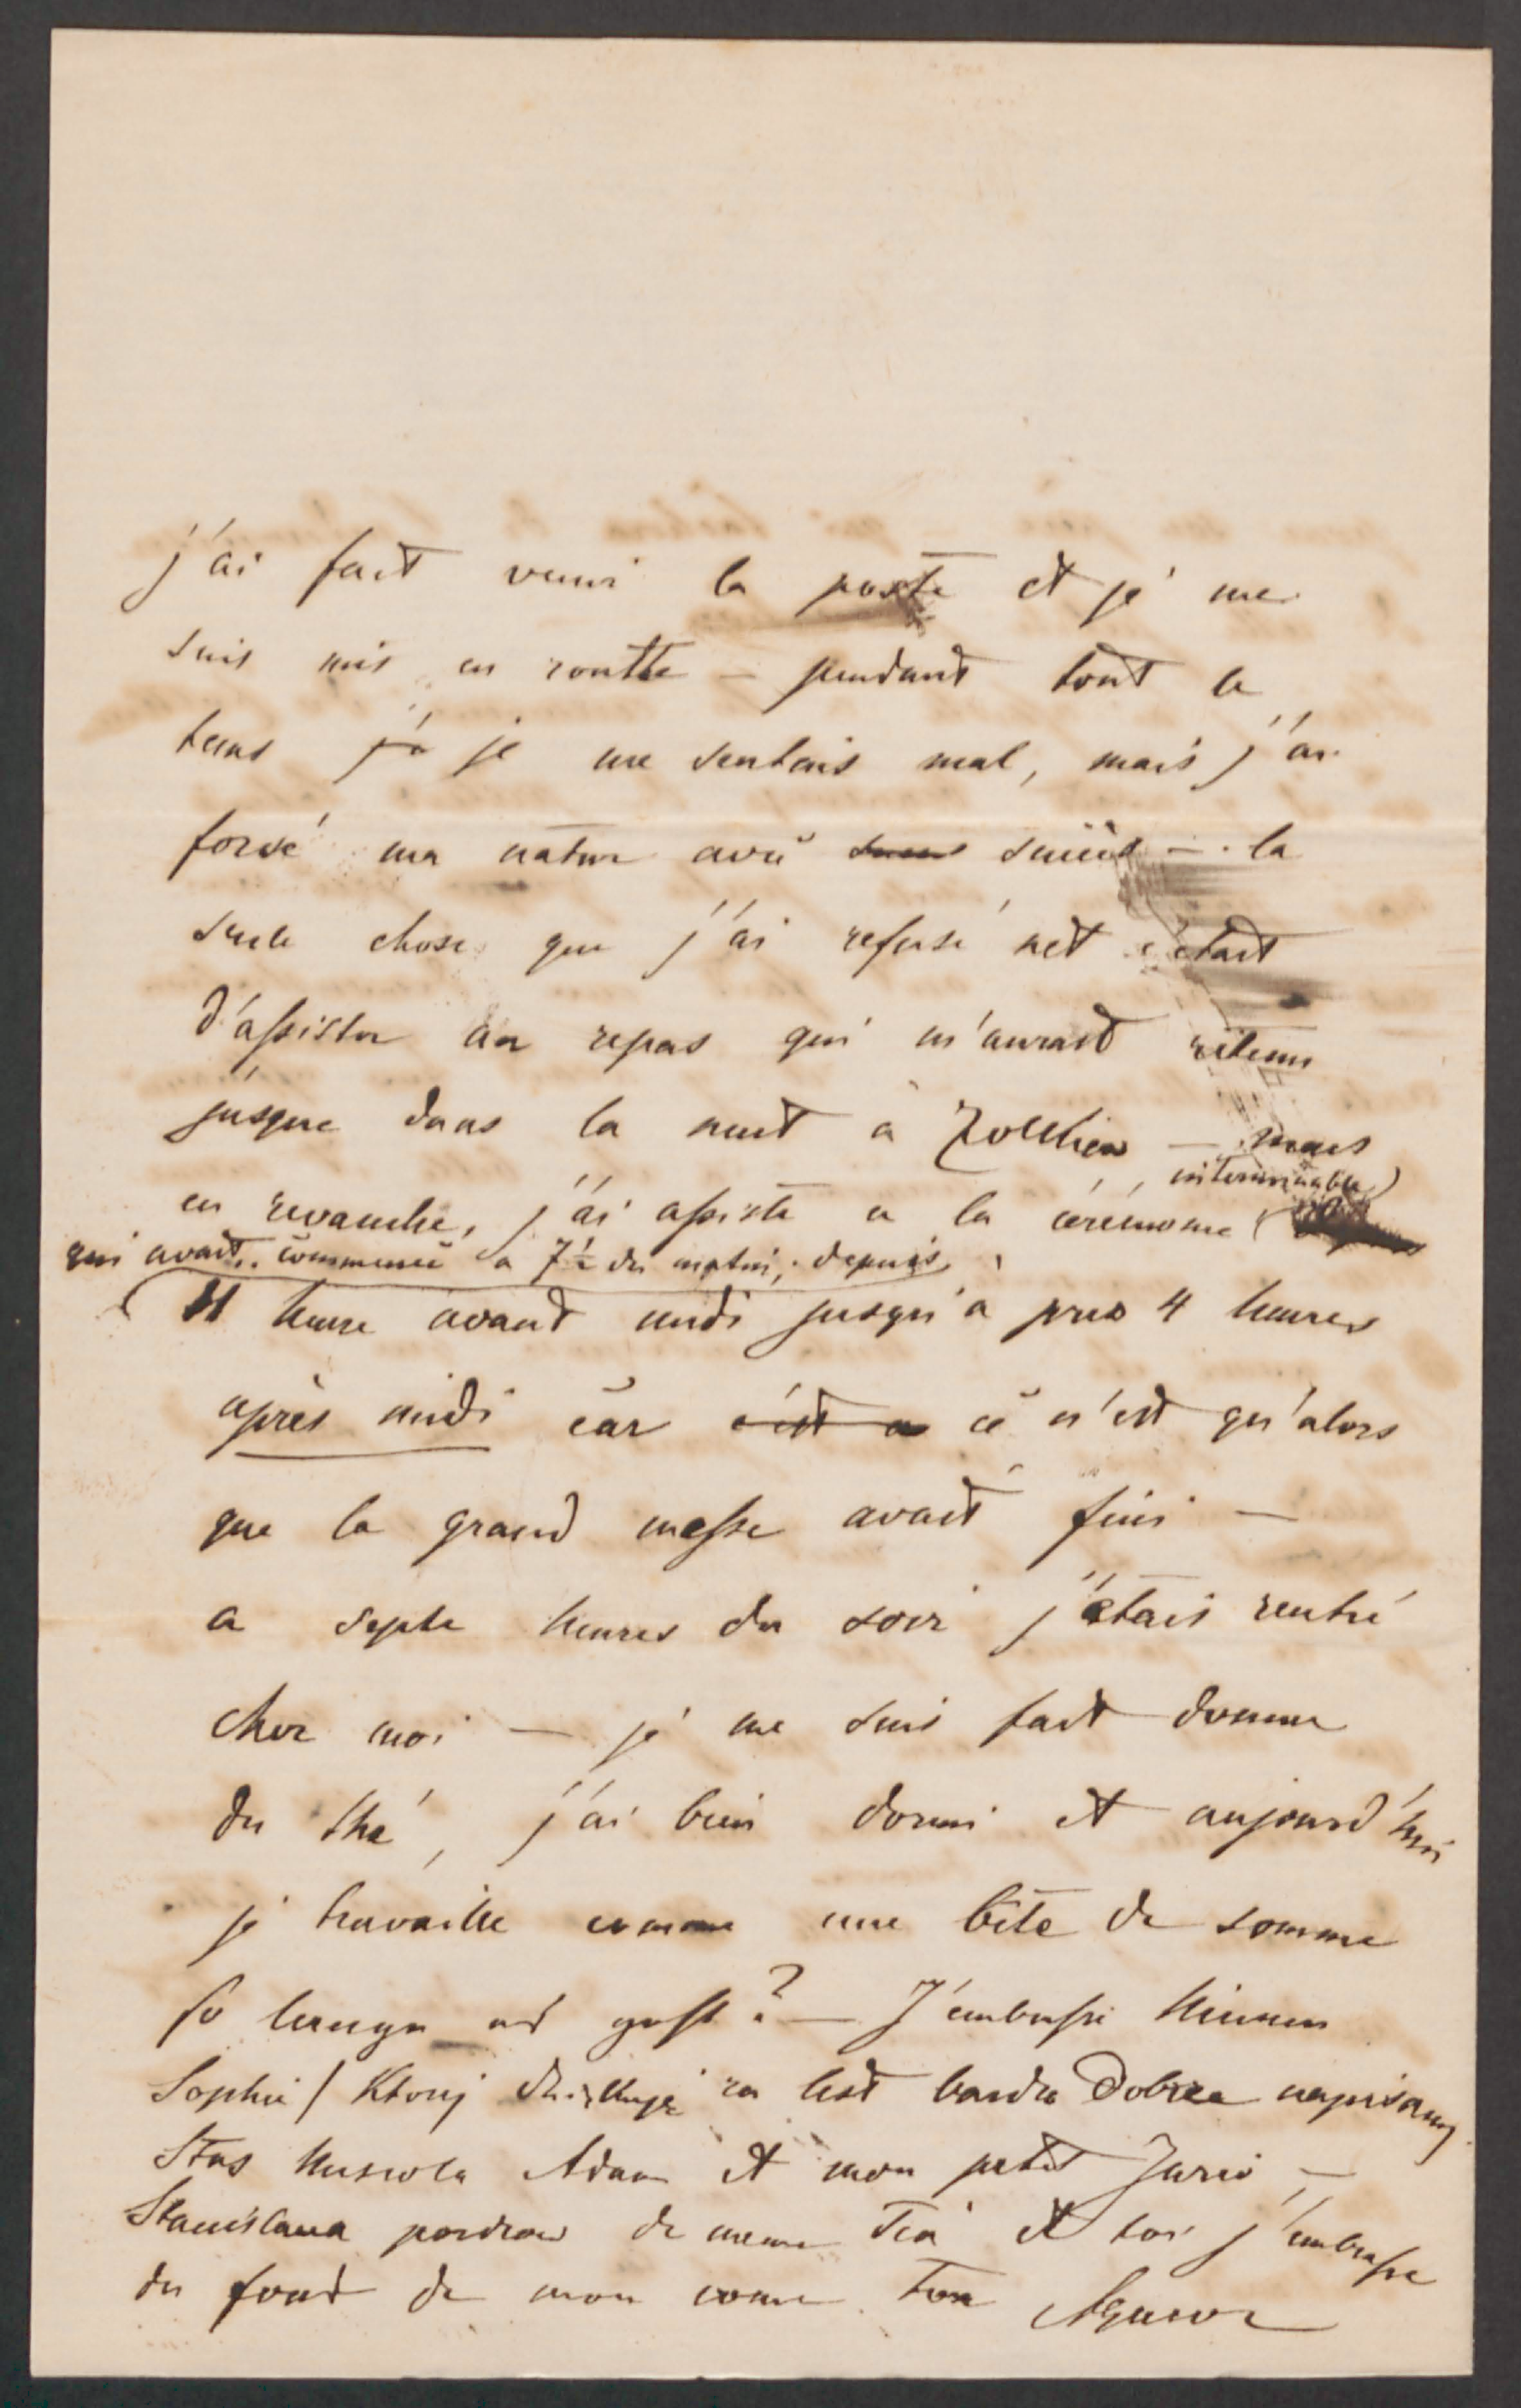 j'ai fait venir la poste et je me
suis mis en routte – pendant tout le
tems j'a je me sentais mal, mais j'ai
forcé ma nature avec succès – la
seule chose que j'ai refusé net c'était
d'assister au repas qui m'aurait retenu
jusque dans la nuit à Zolkiew – mais
interminable
en revanche, j'ai assisté a la cérémonie
qui avait commencé a 7½ du matin, depuis
11 heure avant midi jusqu'a pres 4 heures
après midi car c'est a ce n'est qu'alors
que la grand messe avait fini –
a septe heures du soir j'étais rentré
chez moi – je me suis fait donner
du thé, j'ai bien dormi et aujourd'hui
je travaille comme une bête de somme
so lange es geht? – J'embrasse
Sophie / Ktorej dziękuję za list bardzo dobrze napisany
Stas Adam et mon petit –
Stanislawa de meme et toi j'embrasse
du fond de mon coeur Ton